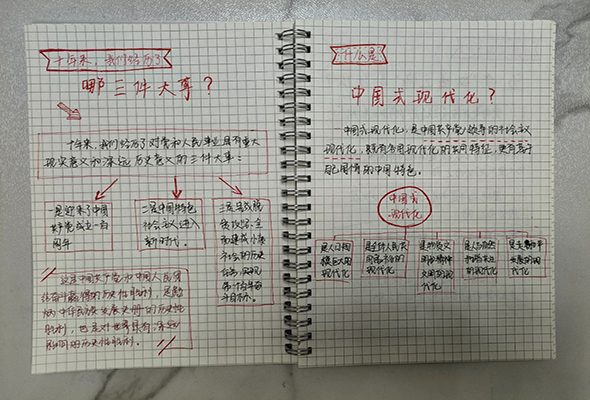 十年来，我们经历了
哪三件大事？
十年来，我们经历了对党和人民事业具有重大
现实意义和深远历史意义的三件大事：
一是迎来了中国
共产党成立一百
周年
二是中国特色
社会主义进入
新时代。
三是完成脱
贫攻坚、全
面建成小康
社会的历史
任务，实现
第一个百年奋
斗目标。
这是中国共产党和中国人民团
结奋斗赢得的历史性胜利，是彪
炳中华民族发展史册的历史性
胜利，也是对世界具有深远
影响的历史性胜利。
什么是
中国式现代化？
中国式现代化，是中国共产党领导的社会主义
现代化，既有各国现代化的共同特征，更有基于
自己国情的中国特色。
中国式
现代化
是人口规
模巨大的
现代化
是全体人民共
同富裕的现
代化
是物质文
明和精神
文明的现
代化
是人与自然
和谐共生
的现代化
是走和平
发展的现
代化